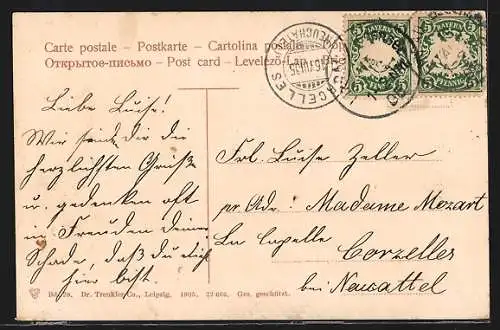 Carte postale – Postkarte – Cartolina postale
Открытое-письмо – Post card – Levelező-Lap – Br
BAYERN
5 PFENNIG 5
BAYERN
5 PFENNIG 5
CORCELLES
(NEUCHATEL)
Liebe Luise!
Wir senden dir die
herzlichsten Grüße
u. gedenken oft
in Freuden deiner
Schade, daß du nicht
hier bist.
Frl. Luise Zeller
pr. Adr. Madame Mozart
La Capelle
Corzelles
bei Neuvattel
Dr. Trenkler Co., Leipzig. 1905. 22 Ges. geschützt.